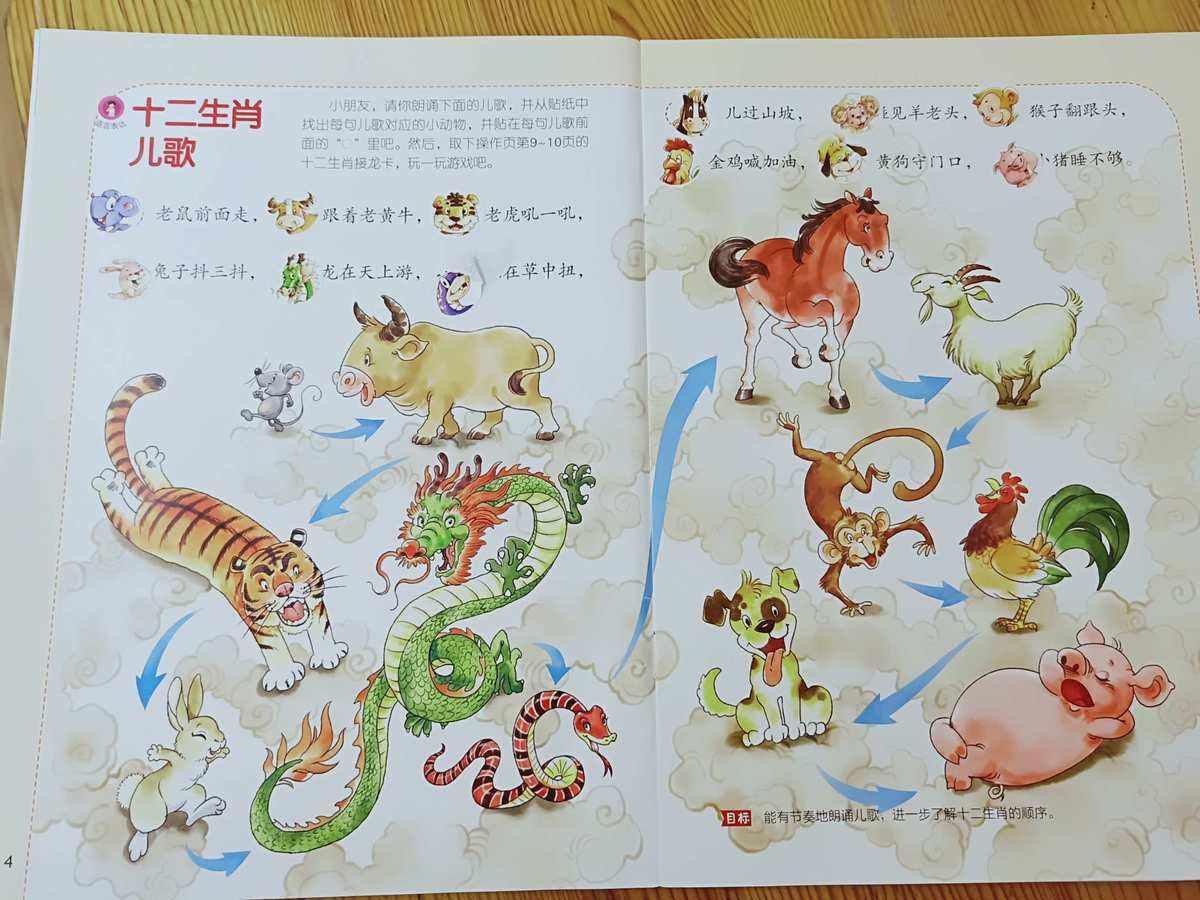 语言表达
十二生肖
儿歌
小朋友，请你朗诵下面的儿歌，并从贴纸中
找出每句儿歌对应的小动物，并贴在每句儿歌前
面的“○”里吧。然后，取下操作页第9~10页的
十二生肖接龙卡，玩一玩游戏吧。
老鼠前面走， 跟着老黄牛， 老虎吼一吼，
兔子抖三抖， 龙在天上游， 在草中扭，
儿过山坡， 见羊老头， 猴子翻跟头，
金鸡喊加油， 黄狗守门口， 小猪睡不够。
目标 能有节奏地朗诵儿歌，进一步了解十二生肖的顺序。
4